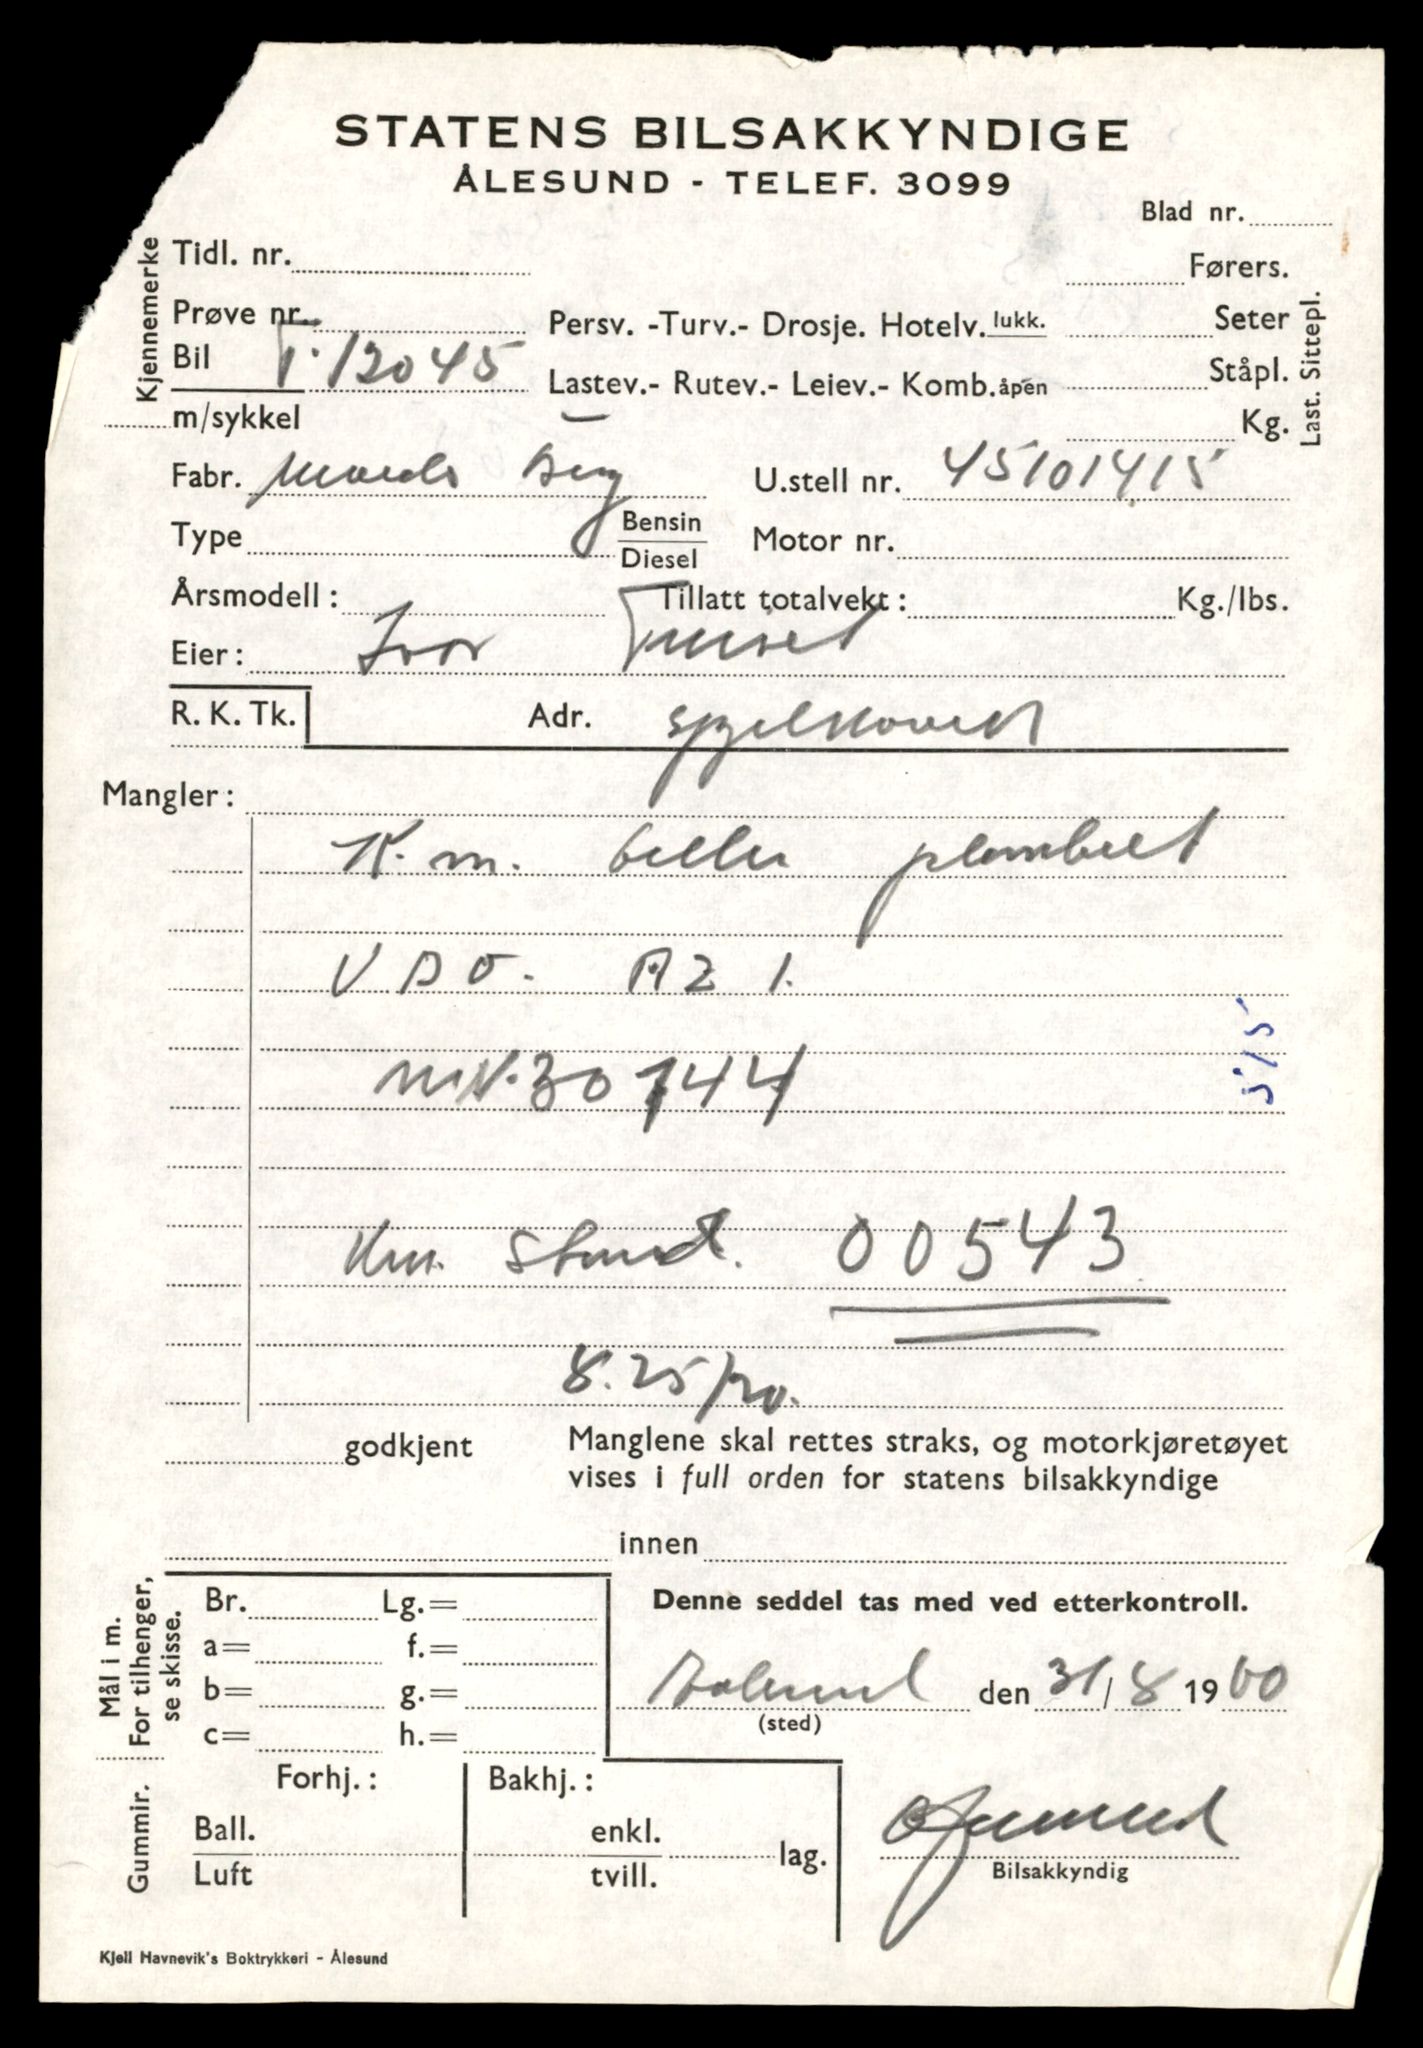 STATENS BILSAKKYNDIGE
ÅLESUND - TELEF. 3099
Blad nr.
Kjennemerke
Tidl. nr.
Førers.
Prøve nr.
Persv. -Turv.- Drosje. Hotelv. lukk.
Seter
Bil T-12045
Lastev.- Rutev.- Leiev.- Komb. åpen
Ståpl.
m/sykkel
Kg.
Last. Sittepl.
Fabr.
U.stell nr. 45101415
Type
Bensin
Diesel
Motor nr.
Årsmodell :
Tillatt totalvekt :
Kg./lbs.
Eier : Ivar
R. K. Tk.
Adr. Spjelkavik
Mangler :
K.m. teller plombert
VDO. A21.
nr. 30744
5/5
Km. Stand. 00543
8.25/20.
godkjent
Manglene skal rettes straks, og motorkjøretøyet
vises i full orden for statens bilsakkyndige
innen
Mål i m.
For tilhenger,
se skisse.
Br. Lg.=
a= f.=
b= g.=
c= h.=
Denne seddel tas med ved etterkontroll.
Ålesund den 31/8 1960
(sted)
Gummir.
Forhj. : Bakhj. :
Ball.
Luft
enkl.
tvill.
lag.
Bilsakkyndig
Kjell Havnevik's Boktrykkeri - Ålesund